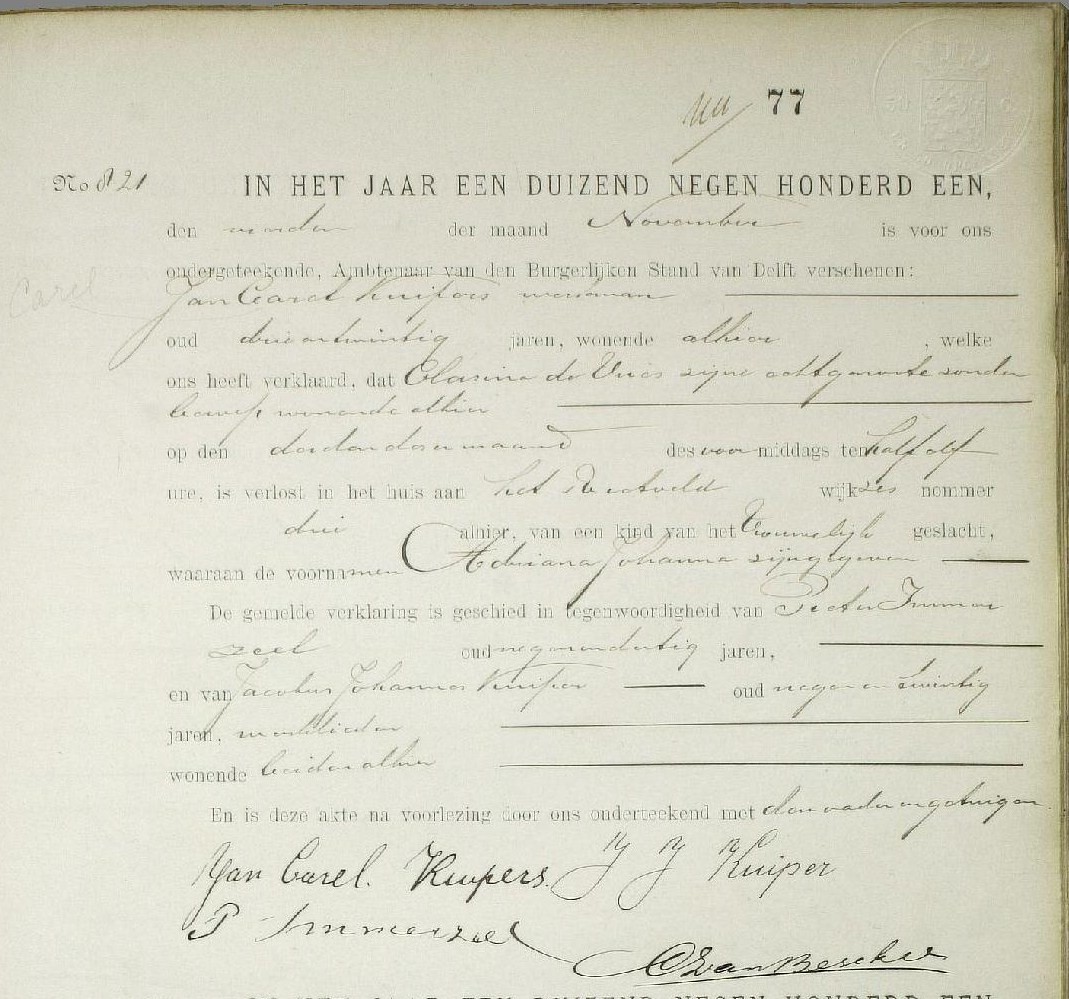 77
No 821 IN HET JAAR EEN DUIZEND NEGEN HONDERD EEN,
den vierden der maand November is voor ons
ondergeteekende, Ambtenaar van den Burgerlijken Stand van Delft verschenen:
Carel
Jan Carel Kuipers werkman
oud drie en twintig jaren, wonende alhier, welke
ons heeft verklaard, dat Clasina de Vries zijne echtgenoote zonder
beroep wonende alhier
op den derden dezer maand des voormiddags ten half elf
ure, is verlost in het huis aan het wijk zes nommer
drie alhier, van een kind van het Vrouwelijk geslacht,
waaraan de voornamen Adriana Johanna zijn gegeven
De gemelde verklaring is geschied in tegenwoordigheid van Pieter Immer
zeel oud negenendertig jaren,
en van Jacobus Johannes Kuiper oud negen en twintig
jaren, werklieden
wonende beiden alhier
En is deze akte na voorlezing door ons onderteekend met den vader en getuigen.
Jan Carel. Kuipers. J J Kuiper
P Immerzeel
IN HET JAAR EEN DUIZEND NEGEN HONDERD EEN